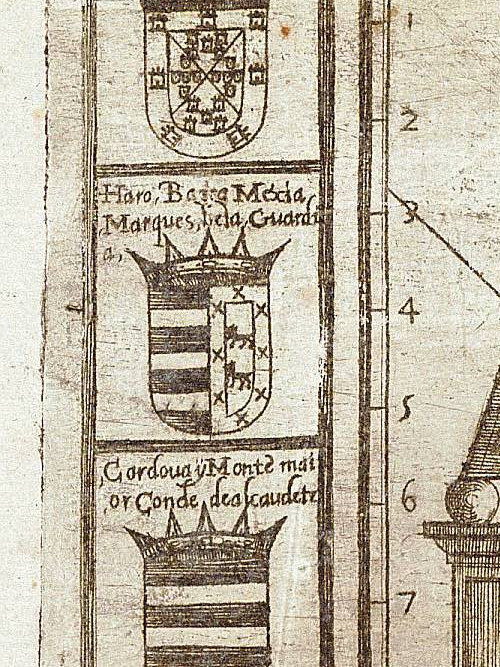 Haro, Mexia,
Marques, dela, Guardi
a,
Cordoua y Monte mai
or Conde, de alcaudete
1
2
3
4
5
6
7